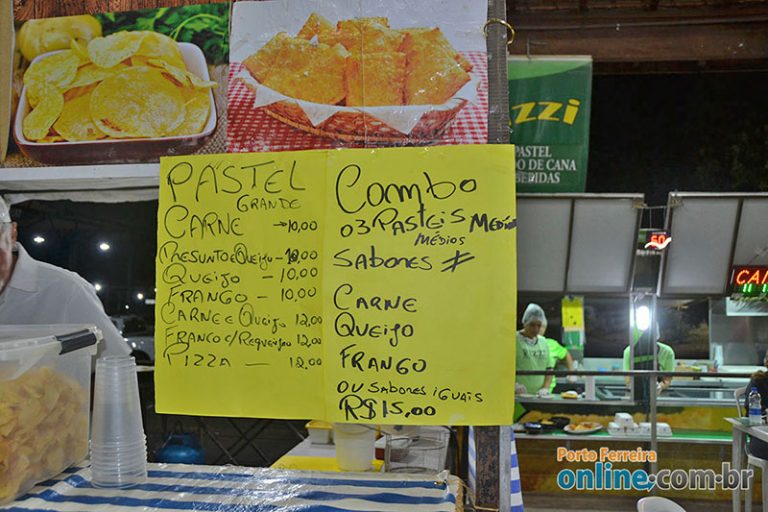 PASTEL
GRANDE
CARNE → 10,00
PRESUNTO E QUEIJO - 10,00
QUEIJO - 10,00
FRANGO - 10,00
CARNE E QUEIJO 12,00
FRANCO C/ REQUEIJÃO 12,00
PIZZA — 12.00
COMBO
03 PASTEIS MÉDIOS
MÉDIOS
SABORES ≠
CARNE
QUEIJO
FRANGO
OU SABORES IGUAIS
R$15,00
ZZI
PASTEL
DO DE CANA
BEBIDAS
Porto Ferreira
online.com.br